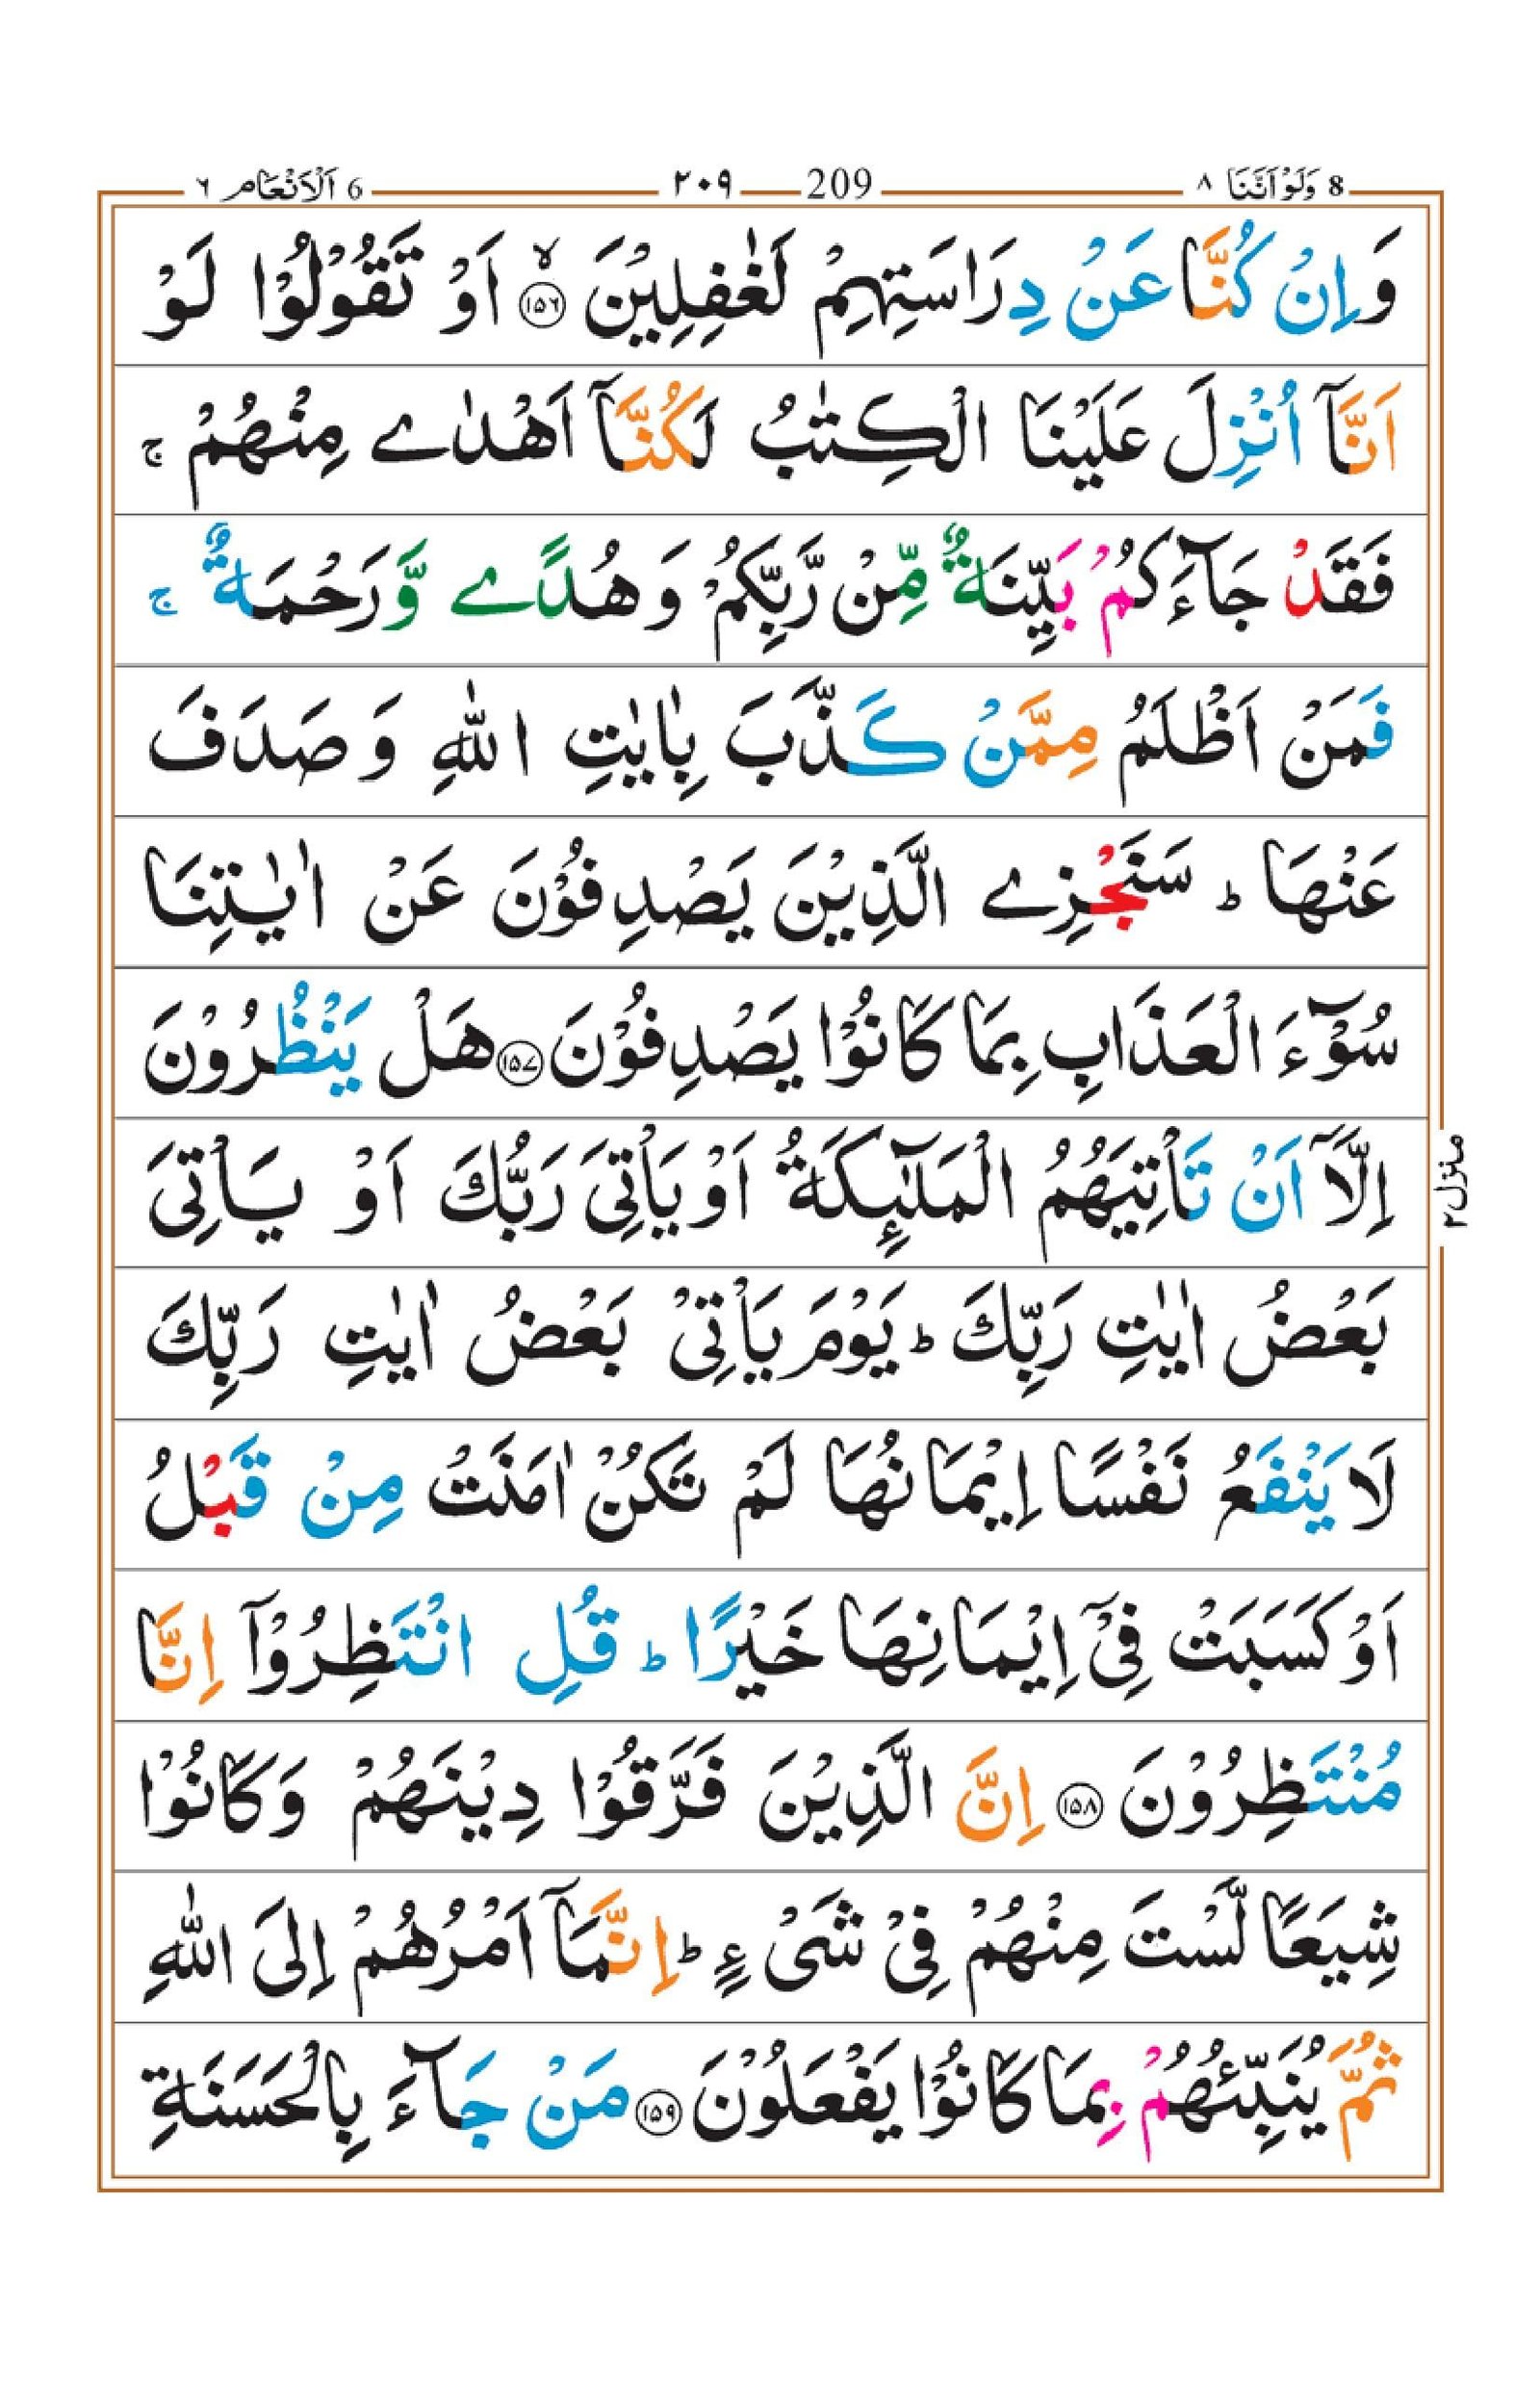 8 وَلَوْ اَنَّنَا ٨ 209 ٢٠٩ 6 اَلْاَنْعَام ٦
وَاِنْ كُنَّا عَنْ دِرَاسَتِهِمْ لَغٰفِلِيْنَ ۙ﴿۱۵۶﴾ اَوْ تَقُوْلُوْا لَوْ
اَنَّاۤ اُنْزِلَ عَلَيْنَا الْكِتٰبُ لَكُنَّاۤ اَهْدٰے مِنْهُمْ ۚ
فَقَدْ جَآءَكُمْ بَيِّنَةٌ مِّنْ رَّبِّكُمْ وَ هُدًے وَّرَحْمَةٌ ۚ
فَمَنْ اَظْلَمُ مِمَّنْ كَذَّبَ بِاٰيٰتِ اللّٰهِ وَ صَدَفَ
عَنْهَا ؕ سَنَجْزِے الَّذِيْنَ يَصْدِفُوْنَ عَنْ اٰيٰتِنَا
سُوْٓءَ الْعَذَابِ بِمَا كَانُوْا يَصْدِفُوْنَ ﴿۱۵۷﴾ هَلْ يَنْظُرُوْنَ
اِلَّاۤ اَنْ تَاْتِيَهُمُ الْمَلٰٓئِكَةُ اَوْ يَاْتِىَ رَبُّكَ اَوْ يَاْتِىَ
بَعْضُ اٰيٰتِ رَبِّكَ ؕ يَوْمَ يَاْتِىْ بَعْضُ اٰيٰتِ رَبِّكَ
لَا يَنْفَعُ نَفْسًا اِيْمَانُهَا لَمْ تَكُنْ اٰمَنَتْ مِنْ قَبْلُ
اَوْ كَسَبَتْ فِىْۤ اِيْمَانِهَا خَيْرًا ؕ قُلِ انْتَظِرُوْۤا اِنَّا
مُنْتَظِرُوْنَ ﴿۱۵۸﴾ اِنَّ الَّذِيْنَ فَرَّقُوْا دِيْنَهُمْ وَكَانُوْا
شِيَعًا لَّسْتَ مِنْهُمْ فِىْ شَىْءٍ ؕ اِنَّمَاۤ اَمْرُهُمْ اِلَى اللّٰهِ
ثُمَّ يُنَبِّئُهُمْ بِمَا كَانُوْا يَفْعَلُوْنَ ﴿۱۵۹﴾ مَنْ جَآءَ بِالْحَسَنَةِ
منزل۲